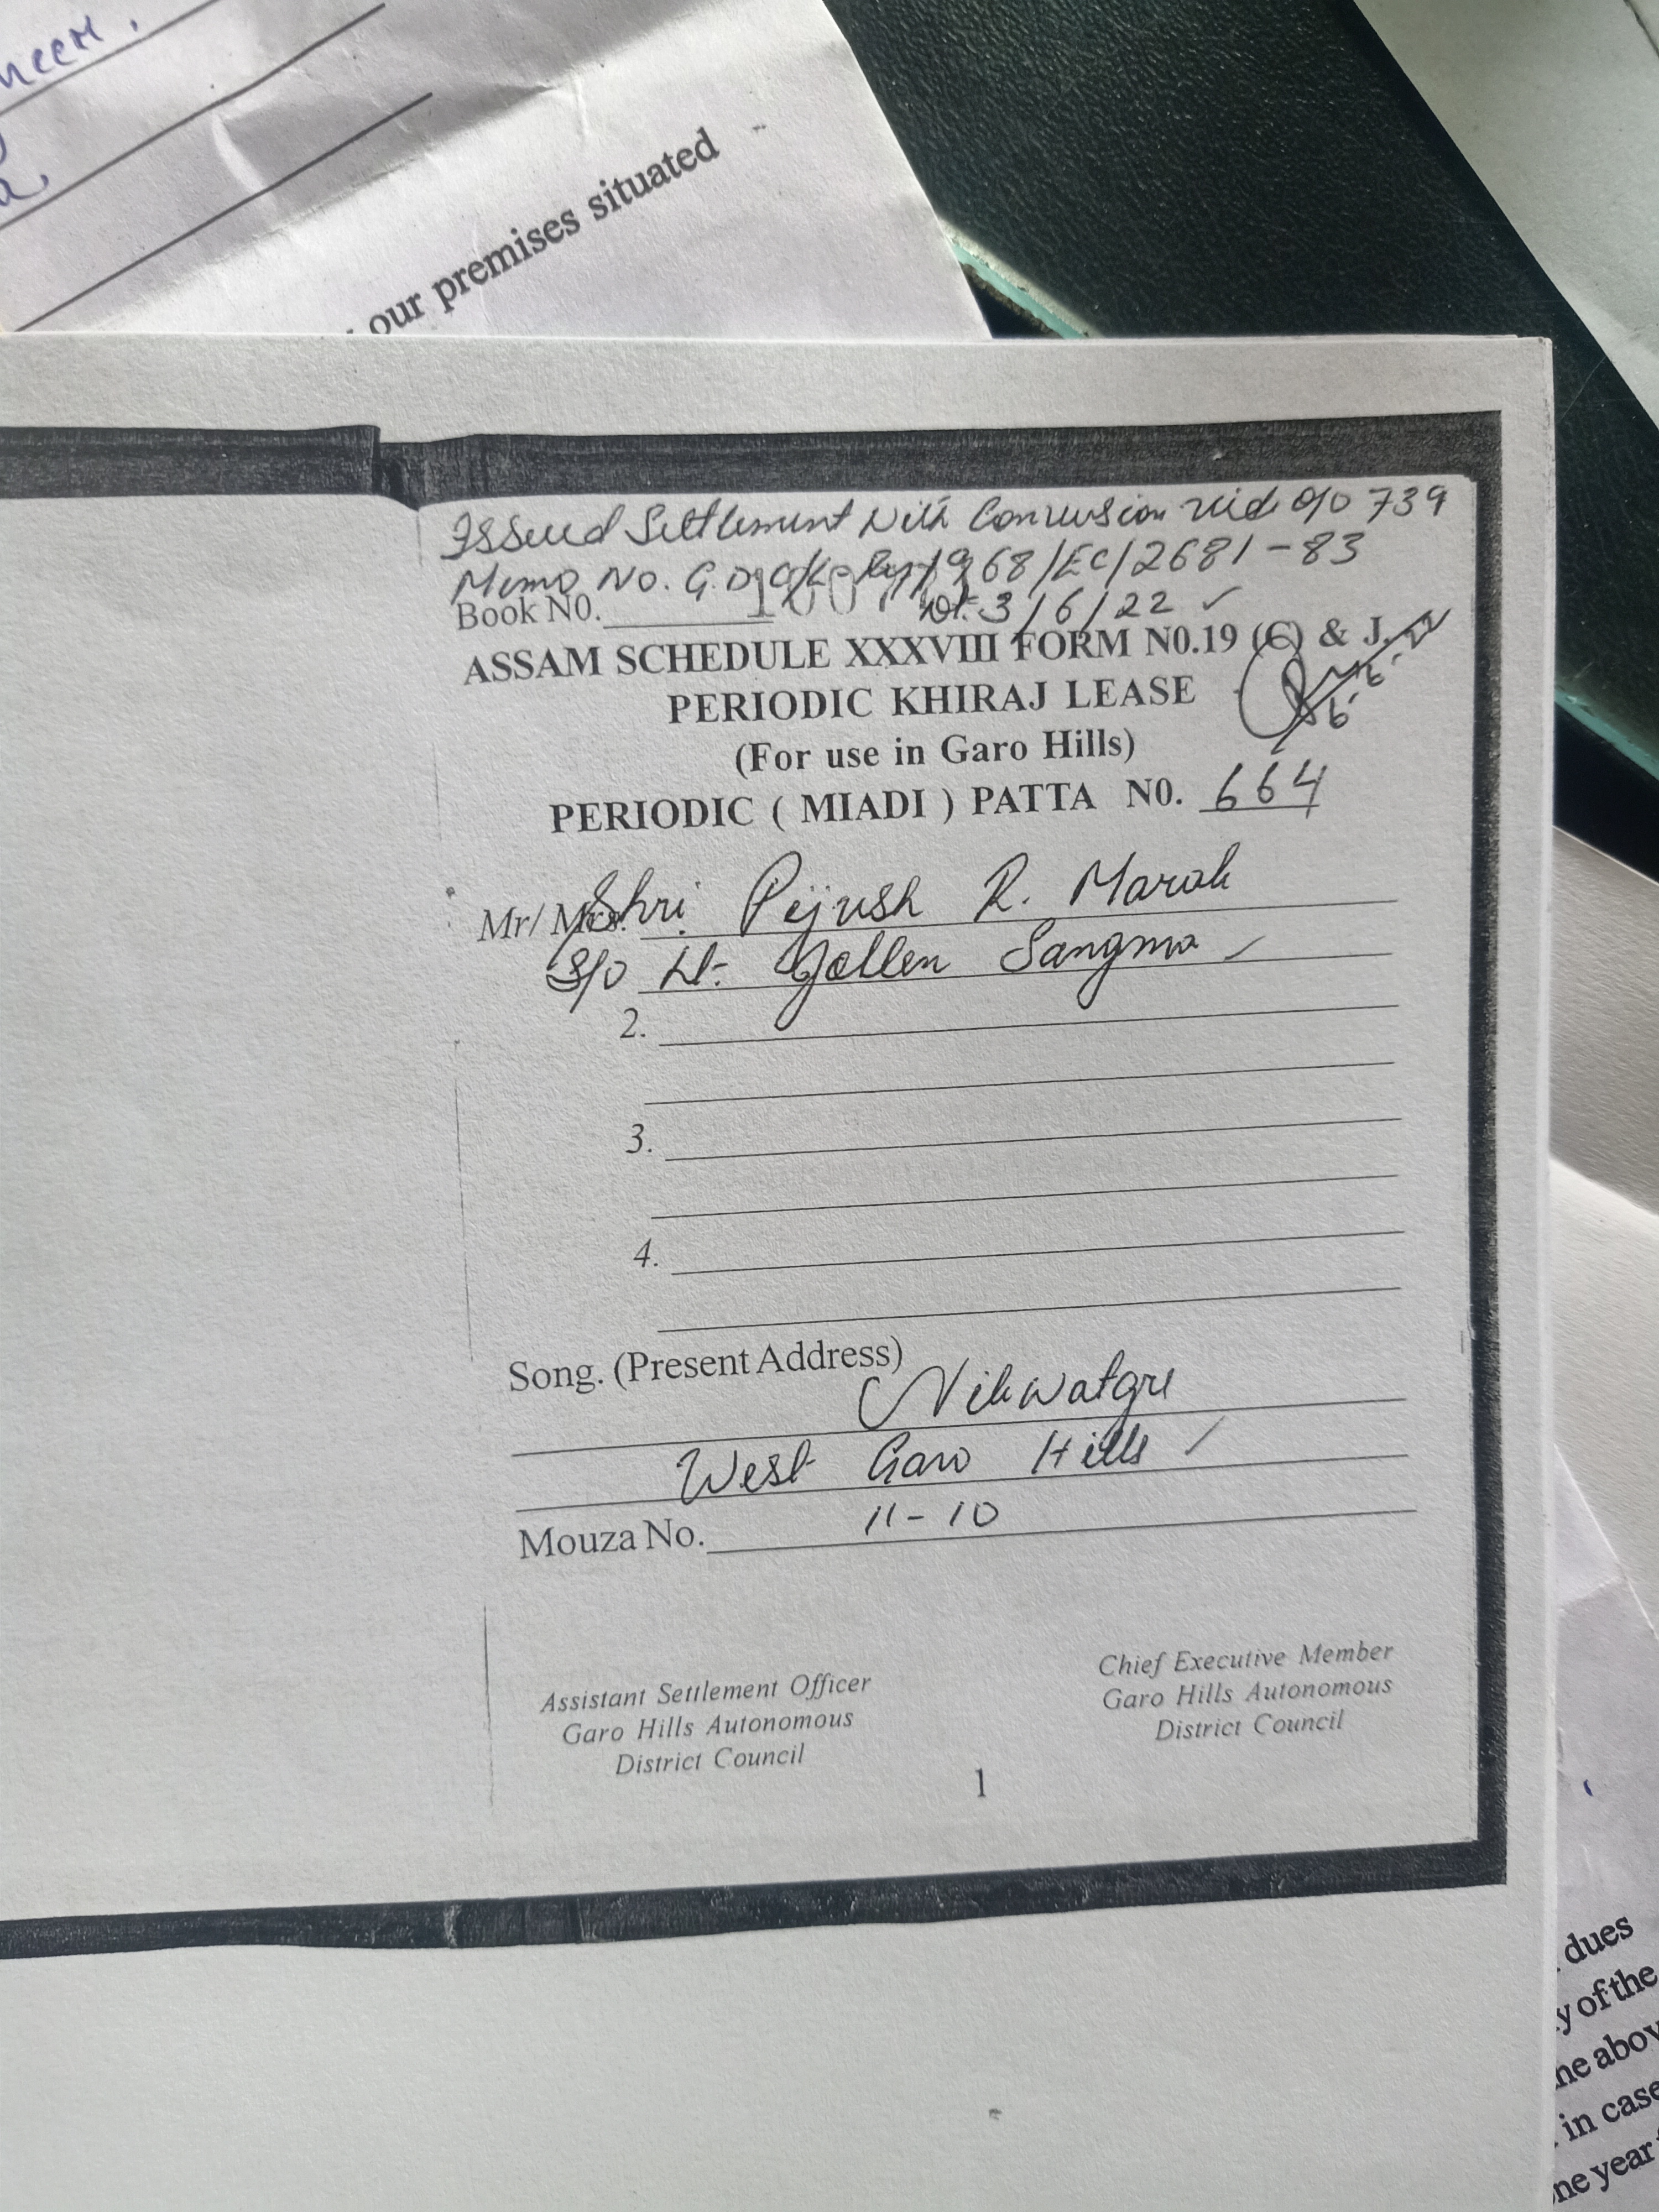 neer.
our premises situated
Issued Settlement with Conversion vid o/o 739
Memo No. G.D.C/ /1968/EC/2681-83
Book N0. 1007
Dt. 3/6/22
ASSAM SCHEDULE XXXVIII FORM N0.19 (C) & J.
PERIODIC KHIRAJ LEASE
(For use in Garo Hills)
PERIODIC ( MIADI ) PATTA N0. 664
Mr/ Mrs. Shri Pijush R. Marak
S/o Lt. Jollen Sangma
2.
3.
4.
Song. (Present Address)
Nikwatgre
West Garo Hills
Mouza No. 11-10
Assistant Settlement Officer
Garo Hills Autonomous
District Council
Chief Executive Member
Garo Hills Autonomous
District Council
1
dues
y of the
in case
ne year